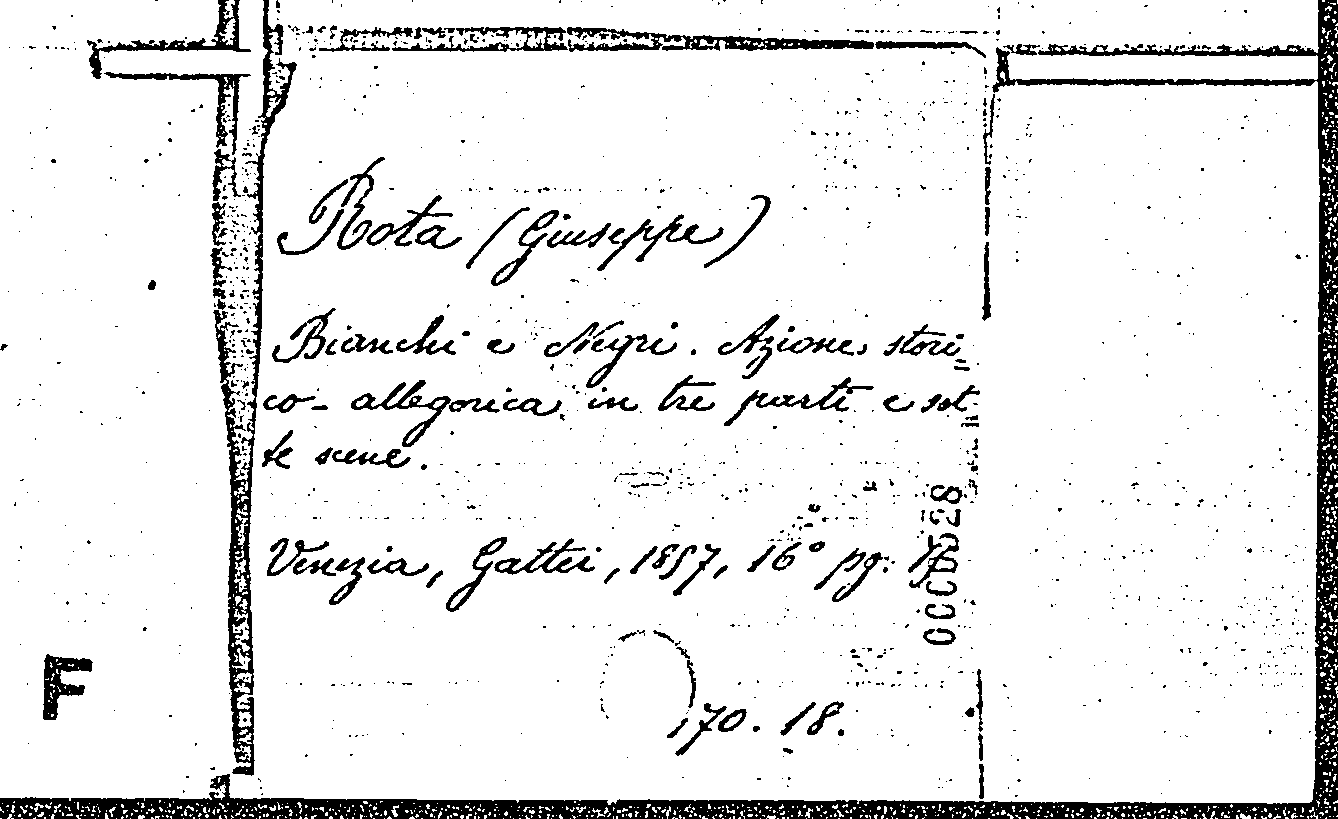 Rota (Giuseppe)
Bianchi e Negri. Azione stori_
co-allegorica in tre parti e set
te scene.
Venezia, Gattei, 1857, 16° pg.
170.18.
F